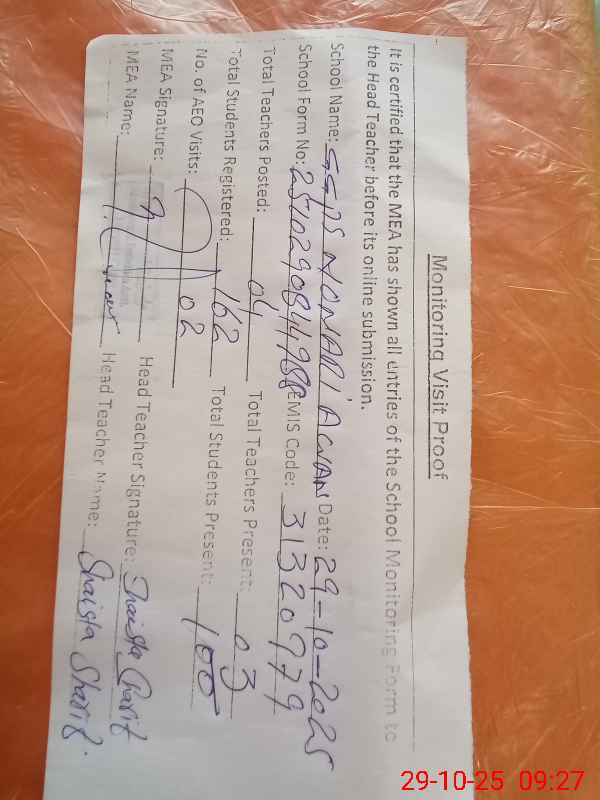 Monitoring Visit Proof
It is certified that the MEA has shown all entries of the School Monitoring Form to
the Head Teacher before its online submission.
School Name: Date: 29-10-2025
School Form No: EMIS Code: 31320779
Total Teachers Posted: 04 Total Teachers Present: 03
Total Students Registered: 162 Total Students Present: 100
No. of AEO Visits: 02
MEA Signature: Head Teacher Signature: Shaista Sharif
MEA Name: Head Teacher Name: Shaista Sharif.
29-10-25 09:27